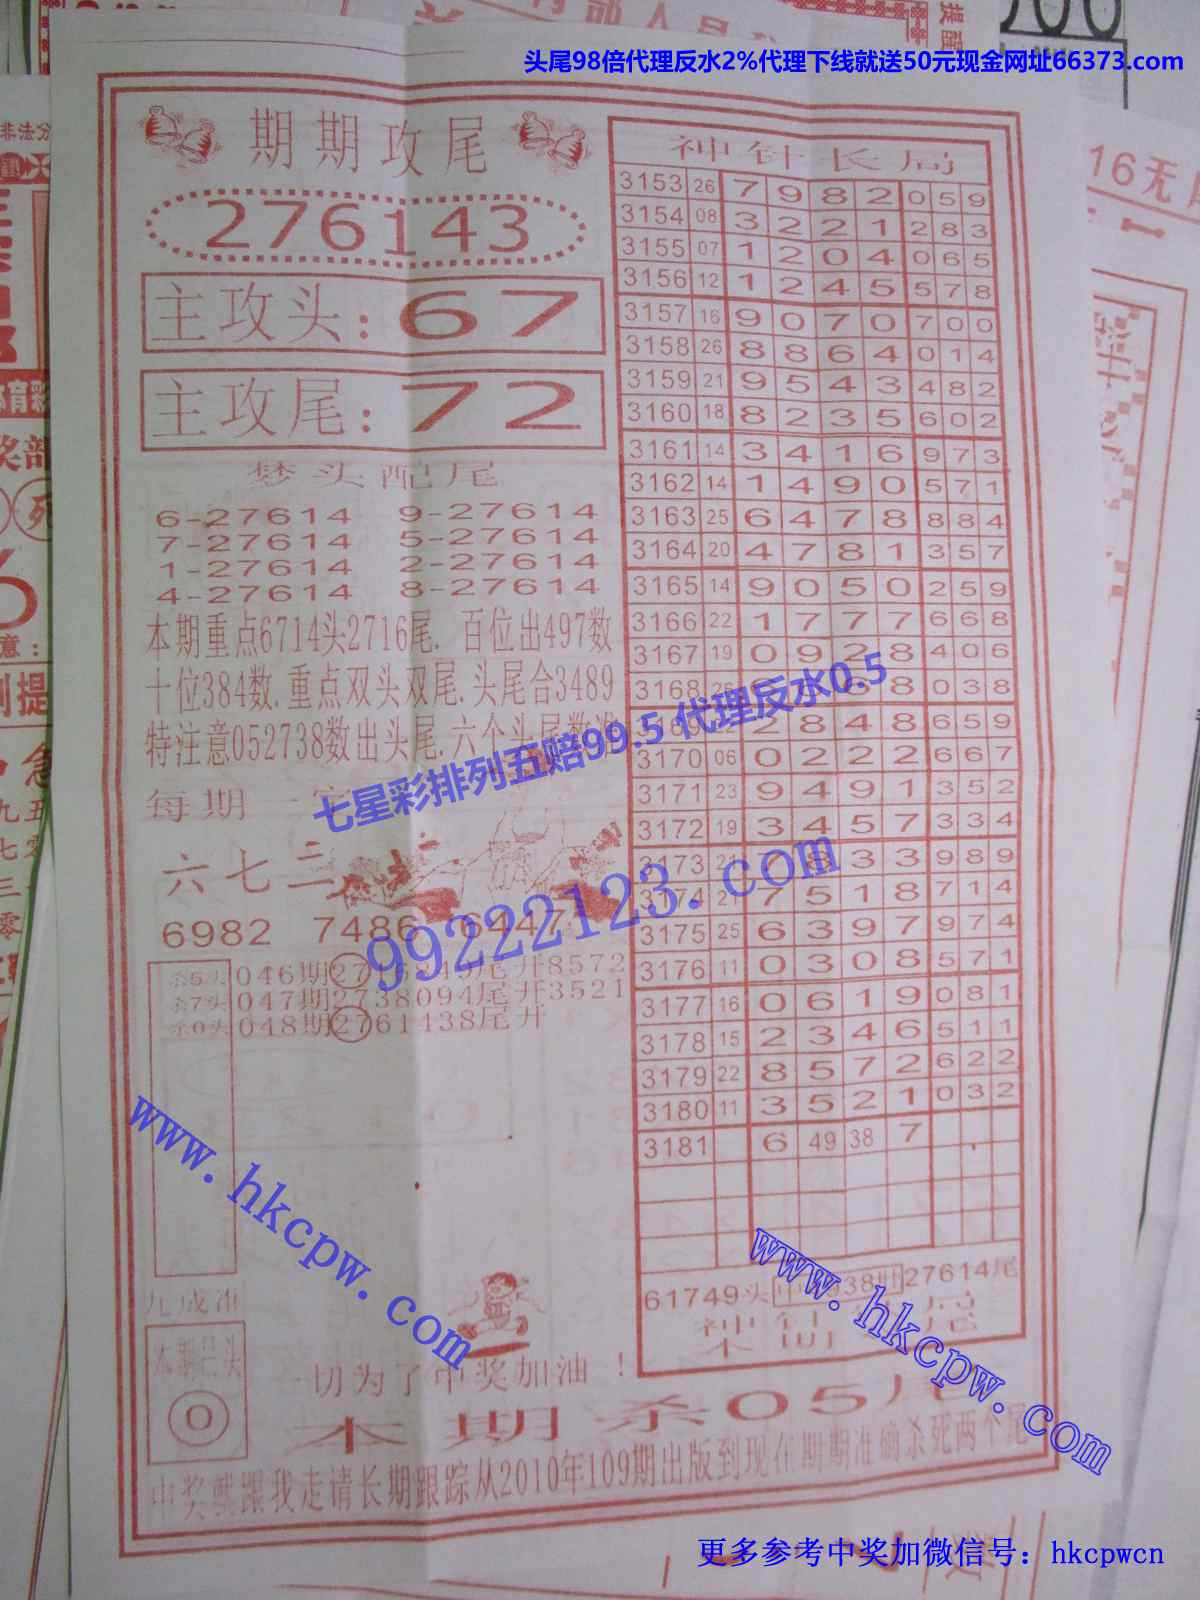 头尾98倍代理反水2%代理下线就送50元现金网址66373.com
提醒
非法分
16无
期期攻尾
276143
主攻头：67
主攻尾：72
梦头配尾
6-27614 9-27614
7-27614 5-27614
1-27614 2-27614
4-27614 8-27614
本期重点6714头2716尾．百位出497数
十位384数.重点双头双尾.头尾合3489
特注意052738数出头尾.六个头尾数准
每期一
六七二
6982 7486 6447
杀5头046期27 尾开8572
杀7头047期2738094尾开3521
杀0头048期2761438尾开
本期杀头
0
一切为了中奖加油！
神针长局
3153 26 7 9 8 2 0 5 9
3154 08 3 2 2 1 2 8 3
3155 07 1 2 0 4 0 6 5
3156 12 1 2 4 5 5 7 8
3157 16 9 0 7 0 7 0 0
3158 26 8 8 6 4 0 1 4
3159 21 9 5 4 3 4 8 2
3160 18 8 2 3 5 6 0 2
3161 14 3 4 1 6 9 7 3
3162 14 1 4 9 0 5 7 1
3163 25 6 4 7 8 8 8 4
3164 20 4 7 8 1 3 5 7
3165 14 9 0 5 0 2 5 9
3166 22 1 7 7 7 6 6 8
3167 19 0 9 2 8 4 0 6
3168 8 0 3 8
2 8 4 8 6 5 9
3170 06 0 2 2 2 6 6 7
3171 23 9 4 9 1 3 5 2
3172 19 3 4 5 7 3 3 4
3173 21 7 8 3 3 9 8 9
3174 21 7 5 1 8 7 1 4
3175 25 6 3 9 7 9 7 4
3176 11 0 3 0 8 5 7 1
3177 16 0 6 1 9 0 8 1
3178 15 2 3 4 6 5 1 1
3179 22 8 5 7 2 6 2 2
3180 11 3 5 2 1 0 3 2
3181 6 49 38 7
61749头 38 27614尾
本期杀05尾
中奖就跟我走请长期跟踪从2010年109期出版到现在期期准确杀死两个尾
七星彩排列五赔99.5 代理反水0.5
99222123.com
www.hkcpw.com
www.hkcpw.com
更多参考中奖加微信号：hkcpwcn